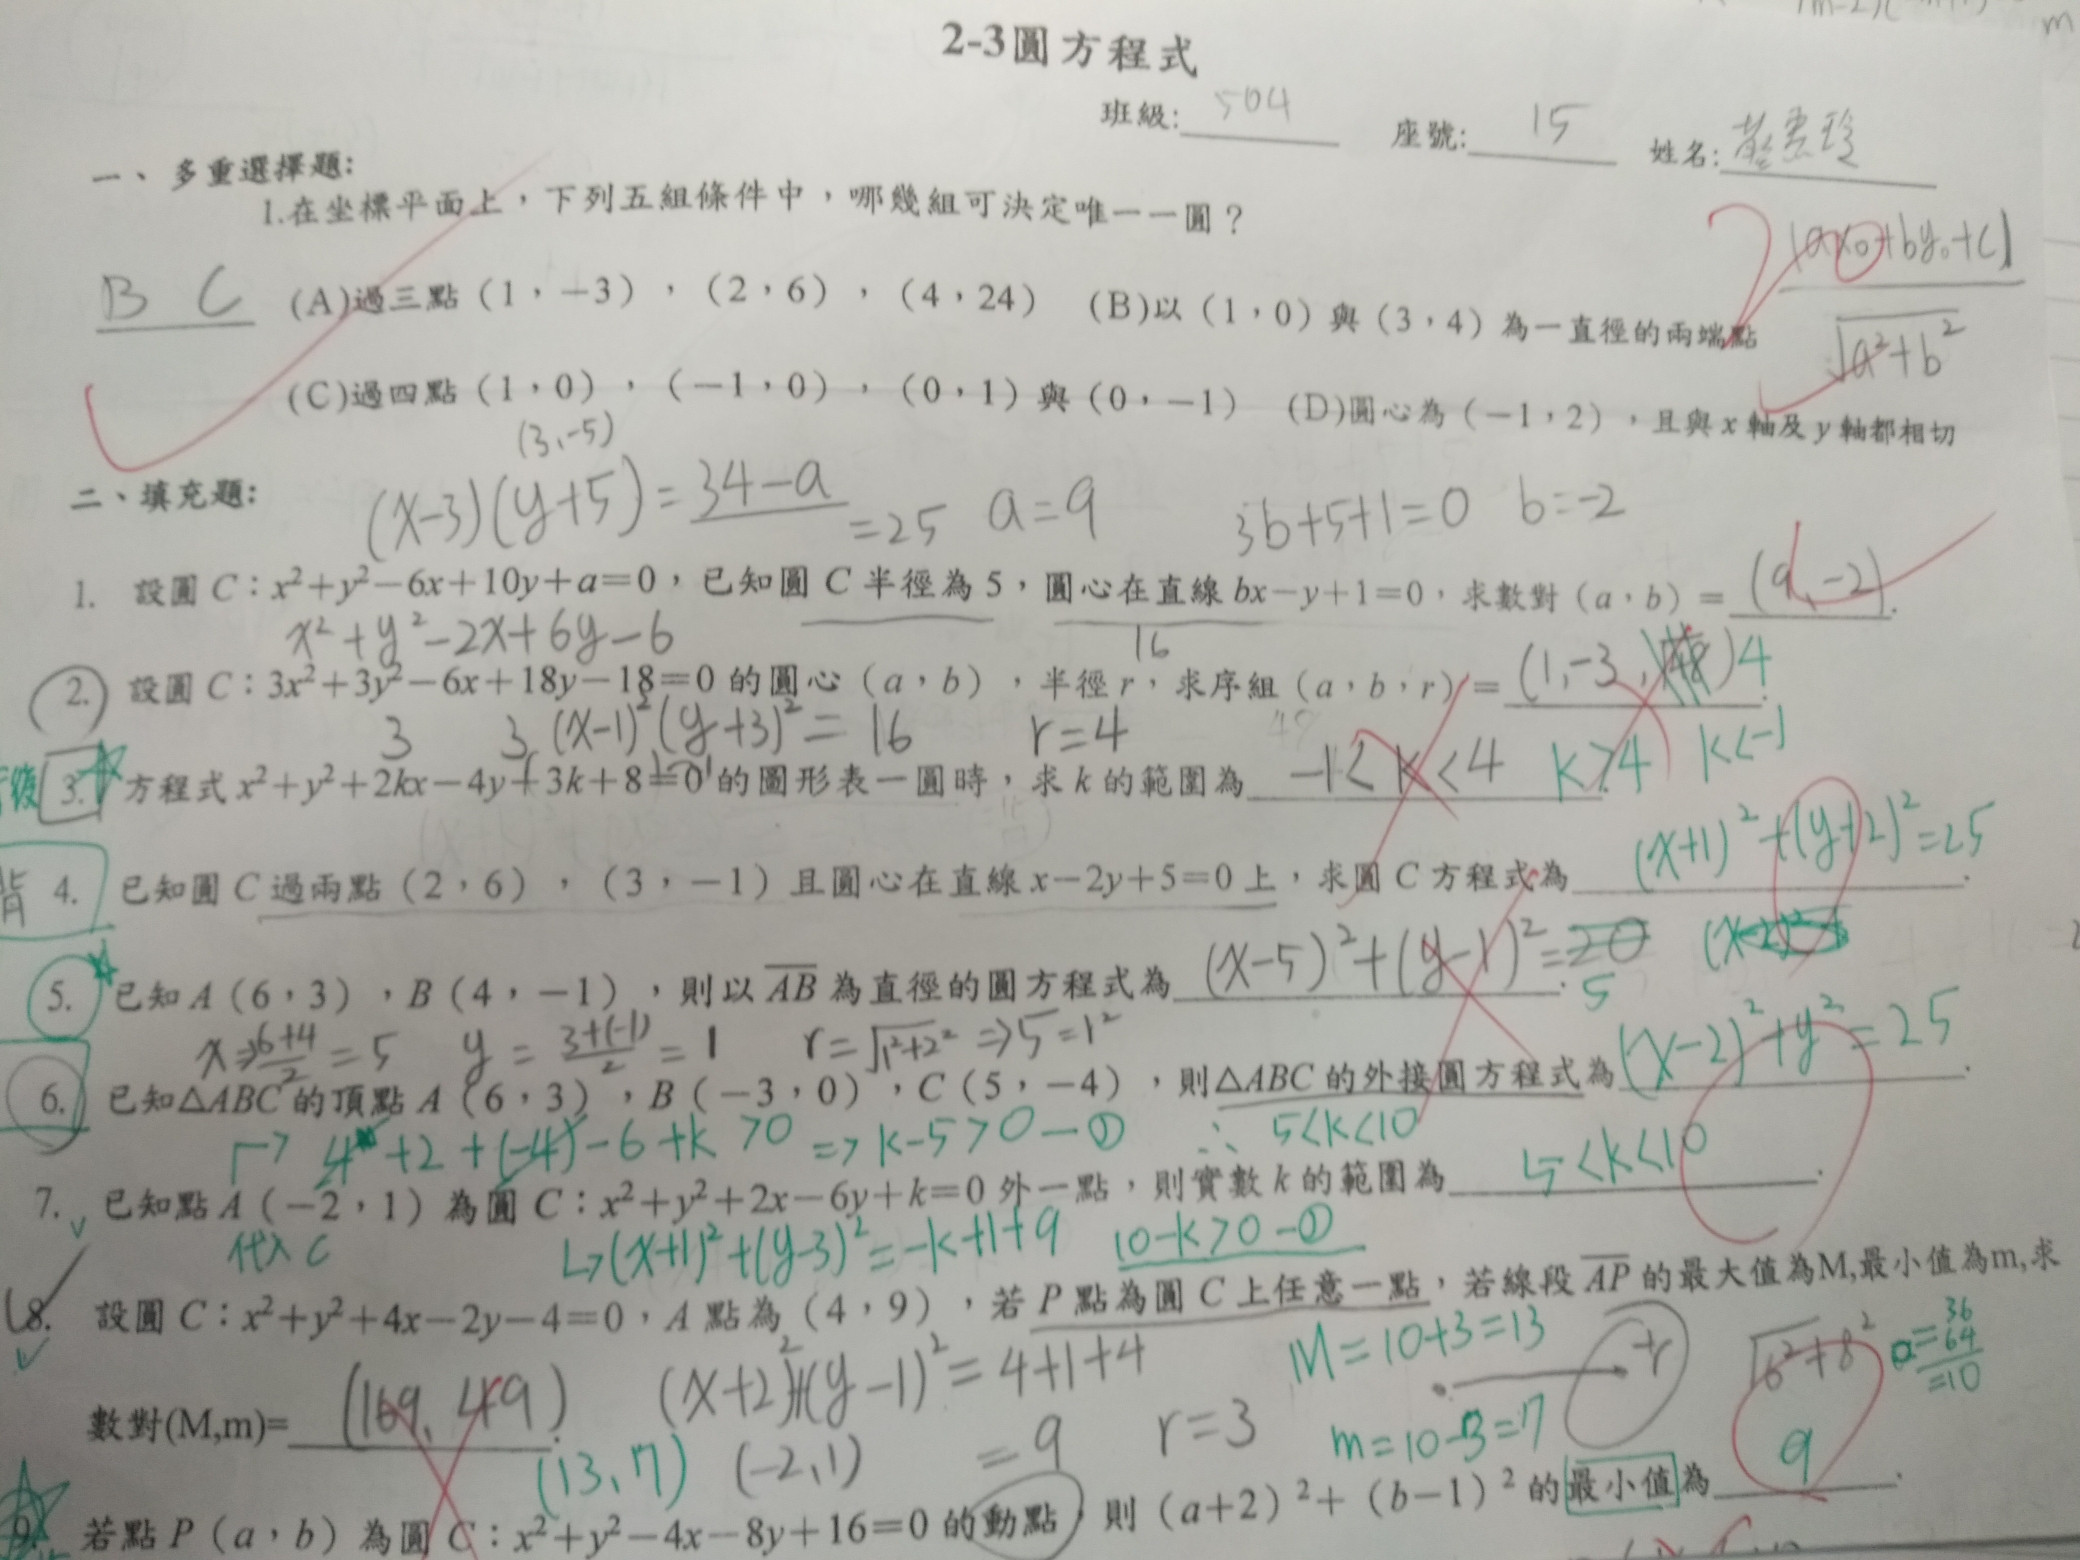 2-3圓方程式
班級: 504 座號: 15 姓名:
一、多重選擇題:
1.在坐標平面上，下列五組條件中，哪幾組可決定唯一一圓？
|ax₀+by₀+c|
√a²+b²
B C (A)過三點（1，−3），（2，6），（4，24） (B)以（1，0）與（3，4）為一直徑的兩端點
(C)過四點（1，0），（−1，0），（0，1）與（0，−1） (D)圓心為（−1，2），且與 x 軸及 y 軸都相切
(3,-5)
二、填充題:
(x-3)(y+5)=34-a =25 a=9 3b+5+1=0 b=-2
1. 設圓 C：x²+y²−6x+10y+a=0，已知圓 C 半徑為 5，圓心在直線 bx−y+1=0，求數對（a，b）= (9,-2).
x²+y²-2x+6y-6 16
2. 設圓 C：3x²+3y²−6x+18y−18=0 的圓心（a，b），半徑 r，求序組（a，b，r）= (1,-3, )4.
3 3 (x-1)²(y+3)²=16 r=4
3. 方程式 x²+y²+2kx−4y+3k+8=0 的圖形表一圓時，求 k 的範圍為 -1<k<4 k>4 k<-1
背 4. 已知圓 C 過兩點（2，6），（3，−1）且圓心在直線 x−2y+5=0 上，求圓 C 方程式為 (x+1)²+(y+2)²=25.
5. 已知 A（6，3），B（4，−1），則以 AB 為直徑的圓方程式為 (x-5)²+(y-1)²=20. 5
x⇒6+4/2=5 y=3+(-1)/2=1 r=√1²+2² ⇒5=1²
6. 已知△ABC 的頂點 A（6，3），B（−3，0），C（5，−4），則△ABC 的外接圓方程式為 (x-2)²+y²=25.
4+2+(-4)-6+k>0 => k-5>0-① ∴ 5<k<10
7. 已知點 A（−2，1）為圓 C：x²+y²+2x−6y+k=0 外一點，則實數 k 的範圍為 5<k<10.
代入 C (x+1)²+(y-3)²=-k+1+9 10-k>0-①
8. 設圓 C：x²+y²+4x−2y−4=0，A 點為（4，9），若 P 點為圓 C 上任意一點，若線段 AP 的最大值為M,最小值為m,求
M=10+3=13 +r √6²+8² a=36 64 =10
數對(M,m)= (169, 49). (x+2)²+(y-1)²=4+1+4
(13,7) (-2,1) =9 r=3 m=10-3=7
9. 若點 P（a，b）為圓 C：x²+y²−4x−8y+16=0 的動點，則（a+2）²+（b−1）²的最小值為 9.